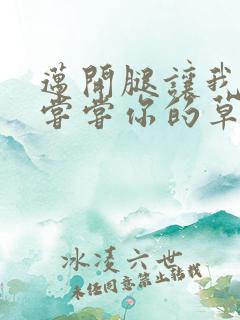 邁開腿讓我
嘗嘗你的草
冰凌六世
未经同意禁止转载